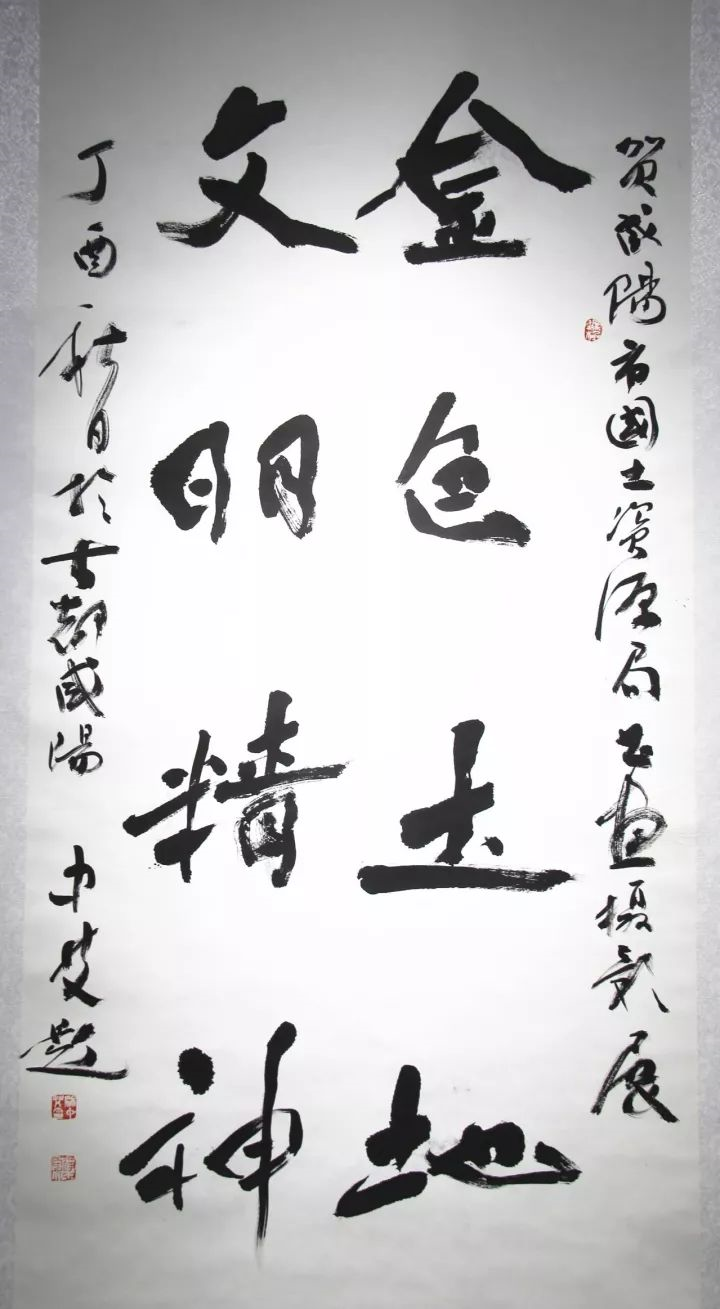 贺咸陽市國土资源局书画摄影展
金色土地
文明精神
丁酉秋月於古都咸陽 中茂题